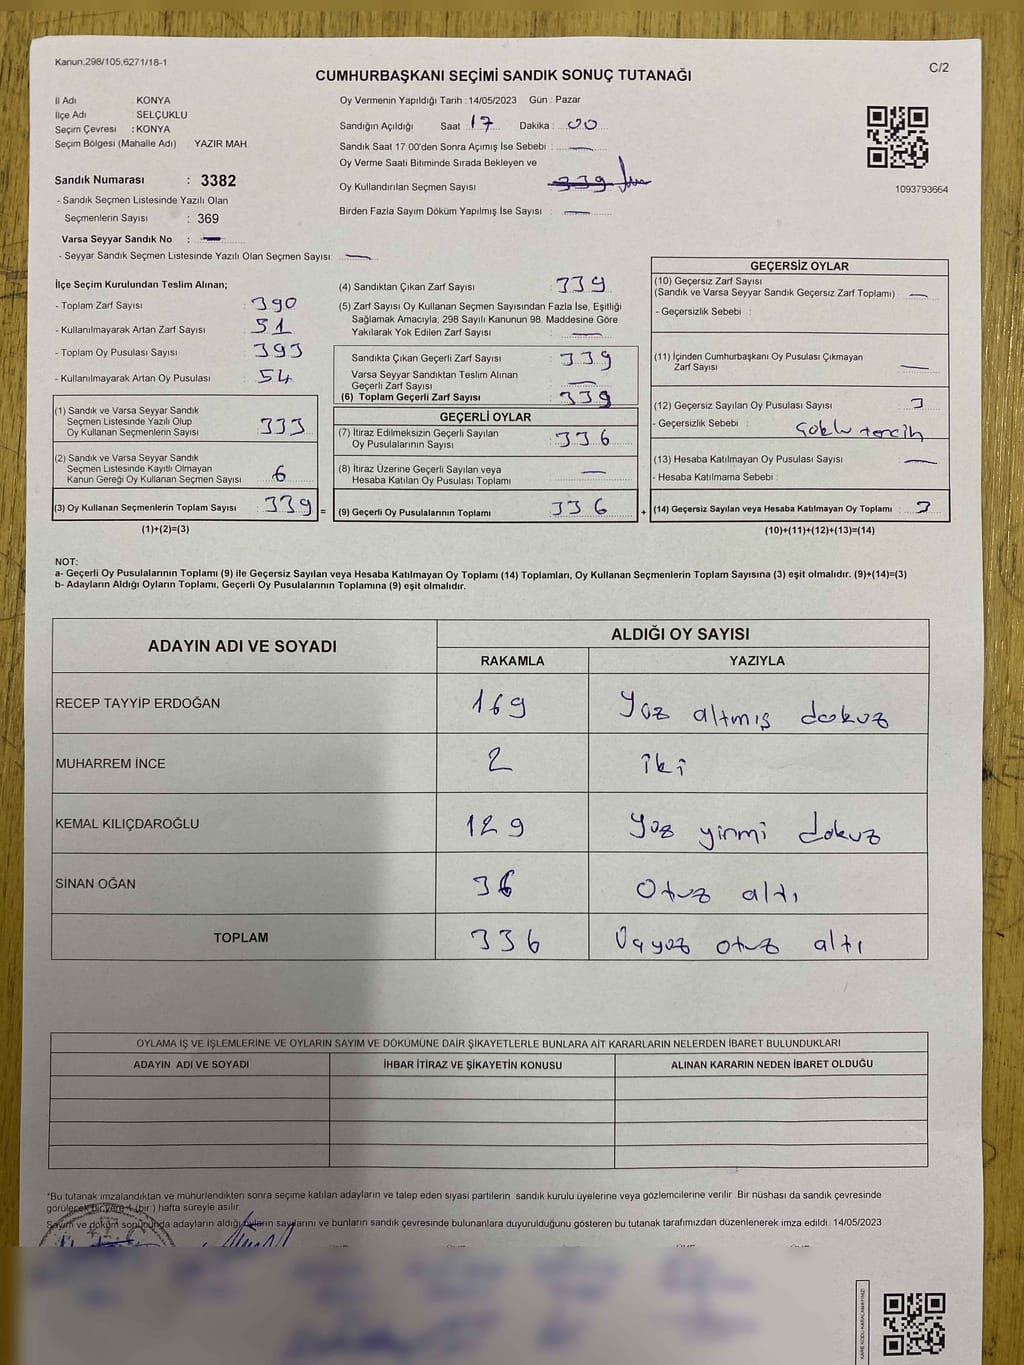 Kanun:298/105,6271/18-1
C/2
CUMHURBAŞKANI SEÇİMİ SANDIK SONUÇ TUTANAĞI
İl Adı : KONYA
İlçe Adı : SELÇUKLU
Seçim Çevresi : KONYA
Seçim Bölgesi (Mahalle Adı) YAZIR MAH.
Sandık Numarası : 3382
- Sandık Seçmen Listesinde Yazılı Olan
Seçmenlerin Sayısı : 369
Varsa Seyyar Sandık No : —
- Seyyar Sandık Seçmen Listesinde Yazılı Olan Seçmen Sayısı: —
Oy Vermenin Yapıldığı Tarih :14/05/2023 Gün : Pazar
Sandığın Açıldığı Saat : 17 Dakika : 00
Sandık Saat 17:00'den Sonra Açımış İse Sebebi : —
Oy Verme Saati Bitiminde Sırada Bekleyen ve
Oy Kullandırılan Seçmen Sayısı 339
Birden Fazla Sayım Döküm Yapılmış İse Sayısı : —
1093793664
İlçe Seçim Kurulundan Teslim Alınan;
- Toplam Zarf Sayısı : 390
- Kullanılmayarak Artan Zarf Sayısı : 51
- Toplam Oy Pusulası Sayısı : 393
- Kullanılmayarak Artan Oy Pusulası : 54
(1) Sandık ve Varsa Seyyar Sandık
Seçmen Listesinde Yazılı Olup
Oy Kullanan Seçmenlerin Sayısı : 333
(2) Sandık ve Varsa Seyyar Sandık
Seçmen Listesinde Kayıtlı Olmayan
Kanun Gereği Oy Kullanan Seçmen Sayısı : 6
(3) Oy Kullanan Seçmenlerin Toplam Sayısı : 339 =
(1)+(2)=(3)
(4) Sandıktan Çıkan Zarf Sayısı : 339
(5) Zarf Sayısı Oy Kullanan Seçmen Sayısından Fazla İse, Eşitliği
Sağlamak Amacıyla, 298 Sayılı Kanunun 98. Maddesine Göre
Yakılarak Yok Edilen Zarf Sayısı : —
Sandıkta Çıkan Geçerli Zarf Sayısı : 339
Varsa Seyyar Sandıktan Teslim Alınan
Geçerli Zarf Sayısı : —
(6) Toplam Geçerli Zarf Sayısı : 339
GEÇERLİ OYLAR
(7) İtiraz Edilmeksizin Geçerli Sayılan
Oy Pusulalarının Sayısı : 336
(8) İtiraz Üzerine Geçerli Sayılan veya
Hesaba Katılan Oy Pusulası Toplamı : —
(9) Geçerli Oy Pusulalarının Toplamı : 336 +
GEÇERSİZ OYLAR
(10) Geçersiz Zarf Sayısı
(Sandık ve Varsa Seyyar Sandık Geçersiz Zarf Toplamı) : —
- Geçersizlik Sebebi :
(11) İçinden Cumhurbaşkanı Oy Pusulası Çıkmayan
Zarf Sayısı : —
(12) Geçersiz Sayılan Oy Pusulası Sayısı : 3
- Geçersizlik Sebebi : çoklu tercih
(13) Hesaba Katılmayan Oy Pusulası Sayısı : —
- Hesaba Katılmama Sebebi :
(14) Geçersiz Sayılan veya Hesaba Katılmayan Oy Toplamı : 3
(10)+(11)+(12)+(13)=(14)
NOT:
a- Geçerli Oy Pusulalarının Toplamı (9) ile Geçersiz Sayılan veya Hesaba Katılmayan Oy Toplamı (14) Toplamları, Oy Kullanan Seçmenlerin Toplam Sayısına (3) eşit olmalıdır. (9)+(14)=(3)
b- Adayların Aldığı Oyların Toplamı, Geçerli Oy Pusulalarının Toplamına (9) eşit olmalıdır.
ADAYIN ADI VE SOYADI
ALDIĞI OY SAYISI
RAKAMLA YAZIYLA
RECEP TAYYİP ERDOĞAN 169 Yüz altmış dokuz
MUHARREM İNCE 2 iki
KEMAL KILIÇDAROĞLU 129 yüz yirmi dokuz
SİNAN OĞAN 36 Otuz altı
TOPLAM 336 Üçyüz otuz altı
OYLAMA İŞ VE İŞLEMLERİNE VE OYLARIN SAYIM VE DÖKÜMÜNE DAİR ŞİKAYETLERLE BUNLARA AİT KARARLARIN NELERDEN İBARET BULUNDUKLARI
ADAYIN ADI VE SOYADI İHBAR İTİRAZ VE ŞİKAYETİN KONUSU ALINAN KARARIN NEDEN İBARET OLDUĞU
*Bu tutanak imzalandıktan ve mühürlendikten sonra seçime katılan adayların ve talep eden siyasi partilerin sandık kurulu üyelerine veya gözlemcilerine verilir. Bir nüshası da sandık çevresinde
görülecek bir yere 1 (bir ) hafta süreyle asılır
Sayım ve döküm sonucunda adayların aldığı oyların sayılarını ve bunların sandık çevresinde bulunanlara duyurulduğunu gösteren bu tutanak tarafımızdan düzenlenerek imza edildi. 14/05/2023